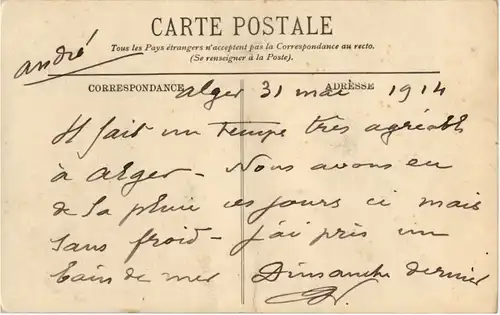 CARTE POSTALE
Tous les Pays étrangers n'acceptent pas la Correspondance au recto.
(Se renseigner à la Poste).
andré
CORRESPONDANCE
ADRESSE
alger 31 mai 1914
Il fait un temps très agréable
à alger - Nous avons eu
de la pluie ces jours ci mais
sans froid - j'ai pris un
bain de mer Dimanche dernier